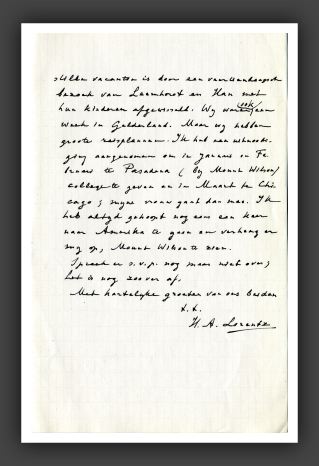 Alle vacantie is door een
bezoek van Leemhorst en Han met
hun kinderen afgewisseld. Wy waren ook een
week in Gelderland. Maar wy hebben
groote reisplannen. Ik heb een uitnoodi-
ging aangenomen om in Januari en Fe-
bruari te Pasadena (by Mount Wilson)
college te geven en in Maart te Chi-
cago; myne vrouw gaat dan mee. Ik
heb altyd gehoopt nog eens een keer
naar Amerika te gaan en verheug er
my op, Mount Wilson te zien.
Spreek er s.v.p. nog maar niet over;
het is nog zoo ver af.
Met hartelyke groeten van ons beiden
t.t.
H. A. Lorentz